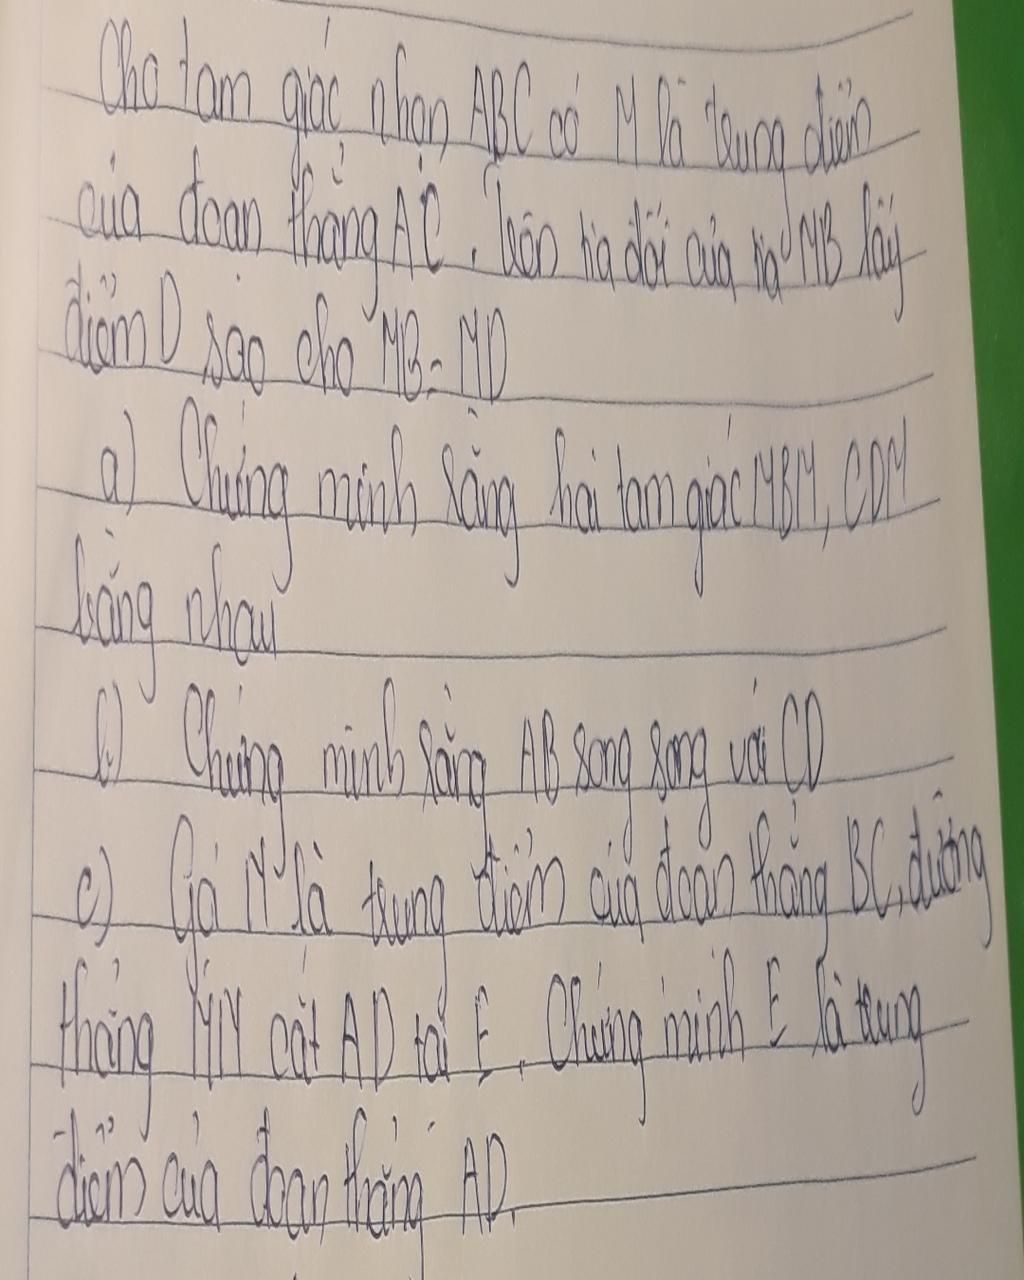 Cho tam giác nhọn ABC có M là trung điểm
của đoạn thẳng AC. Trên tia đối của tia MB lấy
điểm D sao cho MB = MD
a) Chứng minh rằng hai tam giác MBM, CDM
bằng nhau
b) Chứng minh rằng AB song song với CD
c) Gọi N là trung điểm của đoạn thẳng BC, đường
thẳng MN cắt AD tại E. Chứng minh E là trung
điểm của đoạn thẳng AD.